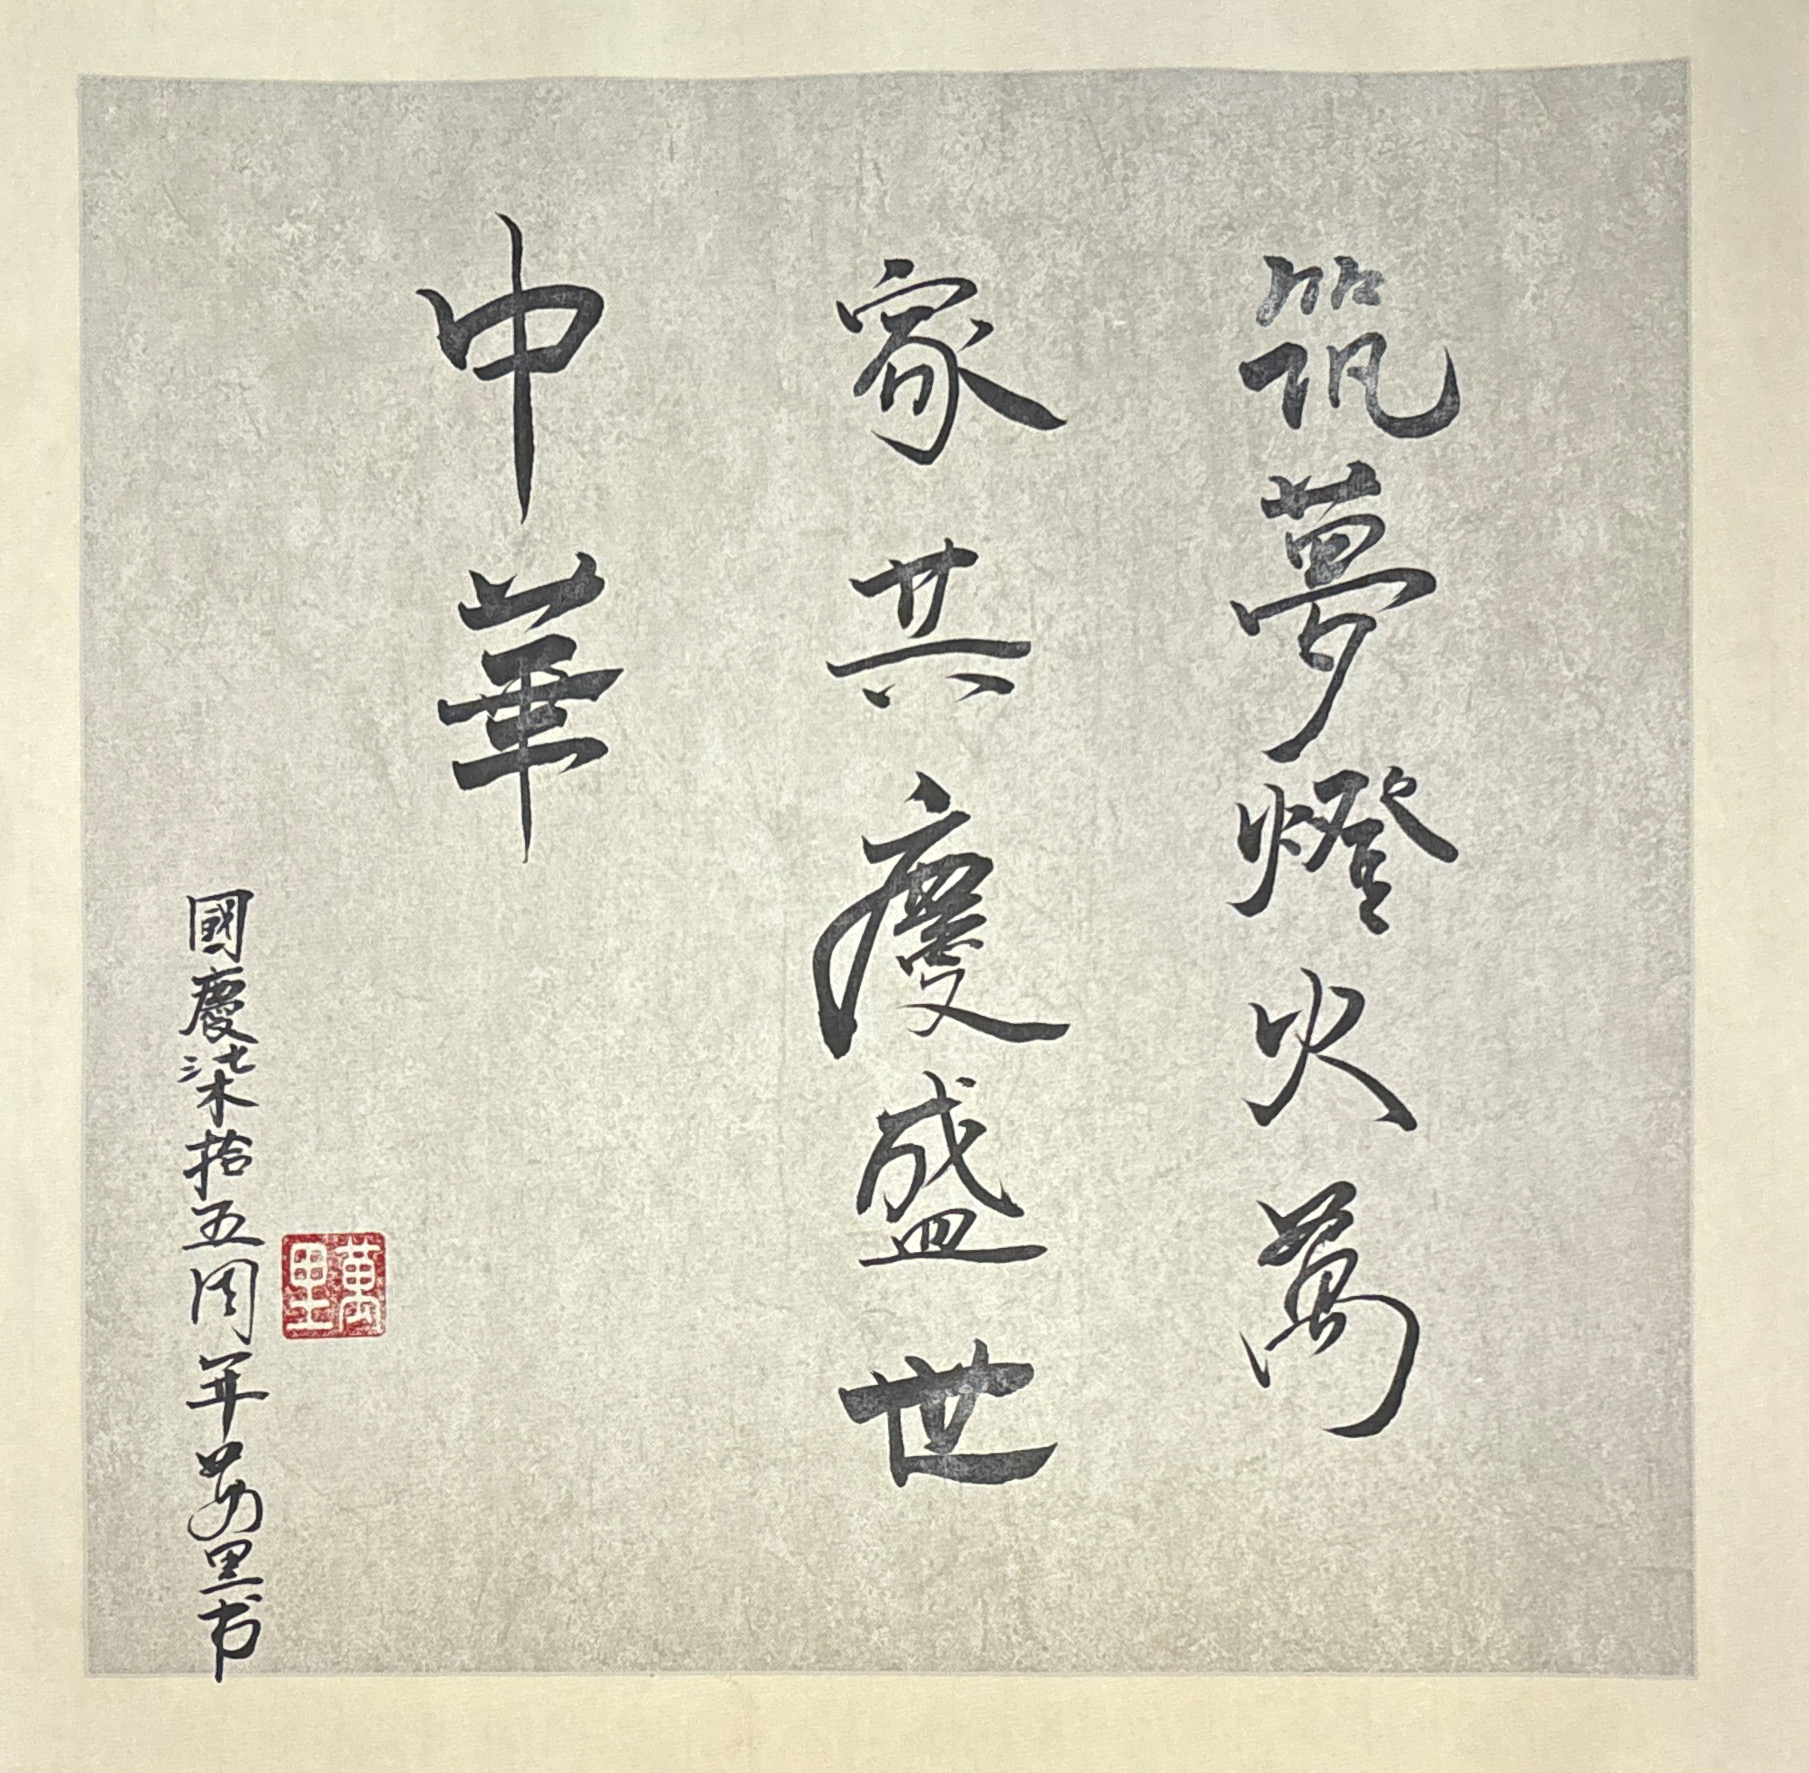 筑夢燈火萬
家共慶盛世
中華
國慶柒拾五周年萬里书
萬里